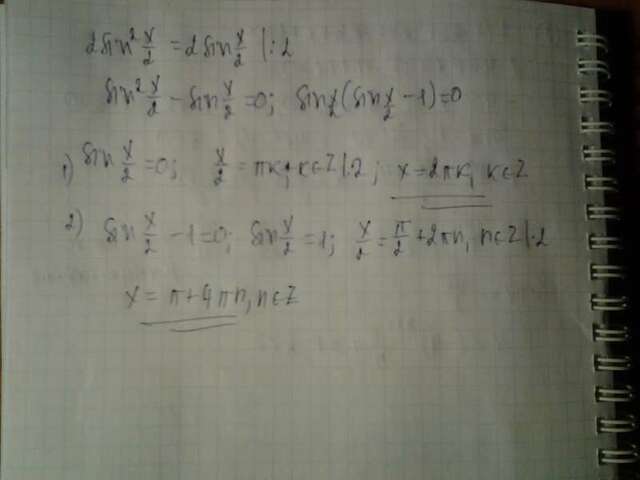 2sin² x/2 = 2sin x/2 |:2
sin² x/2 - sin x/2 = 0; sin x/2 (sin x/2 - 1) = 0
1) sin x/2 = 0; x/2 = πk, k∈Z |·2; x = 2πk, k∈Z
2) sin x/2 - 1 = 0; sin x/2 = 1; x/2 = π/2 + 2πn, n∈Z |·2
x = π + 4πn, n∈Z